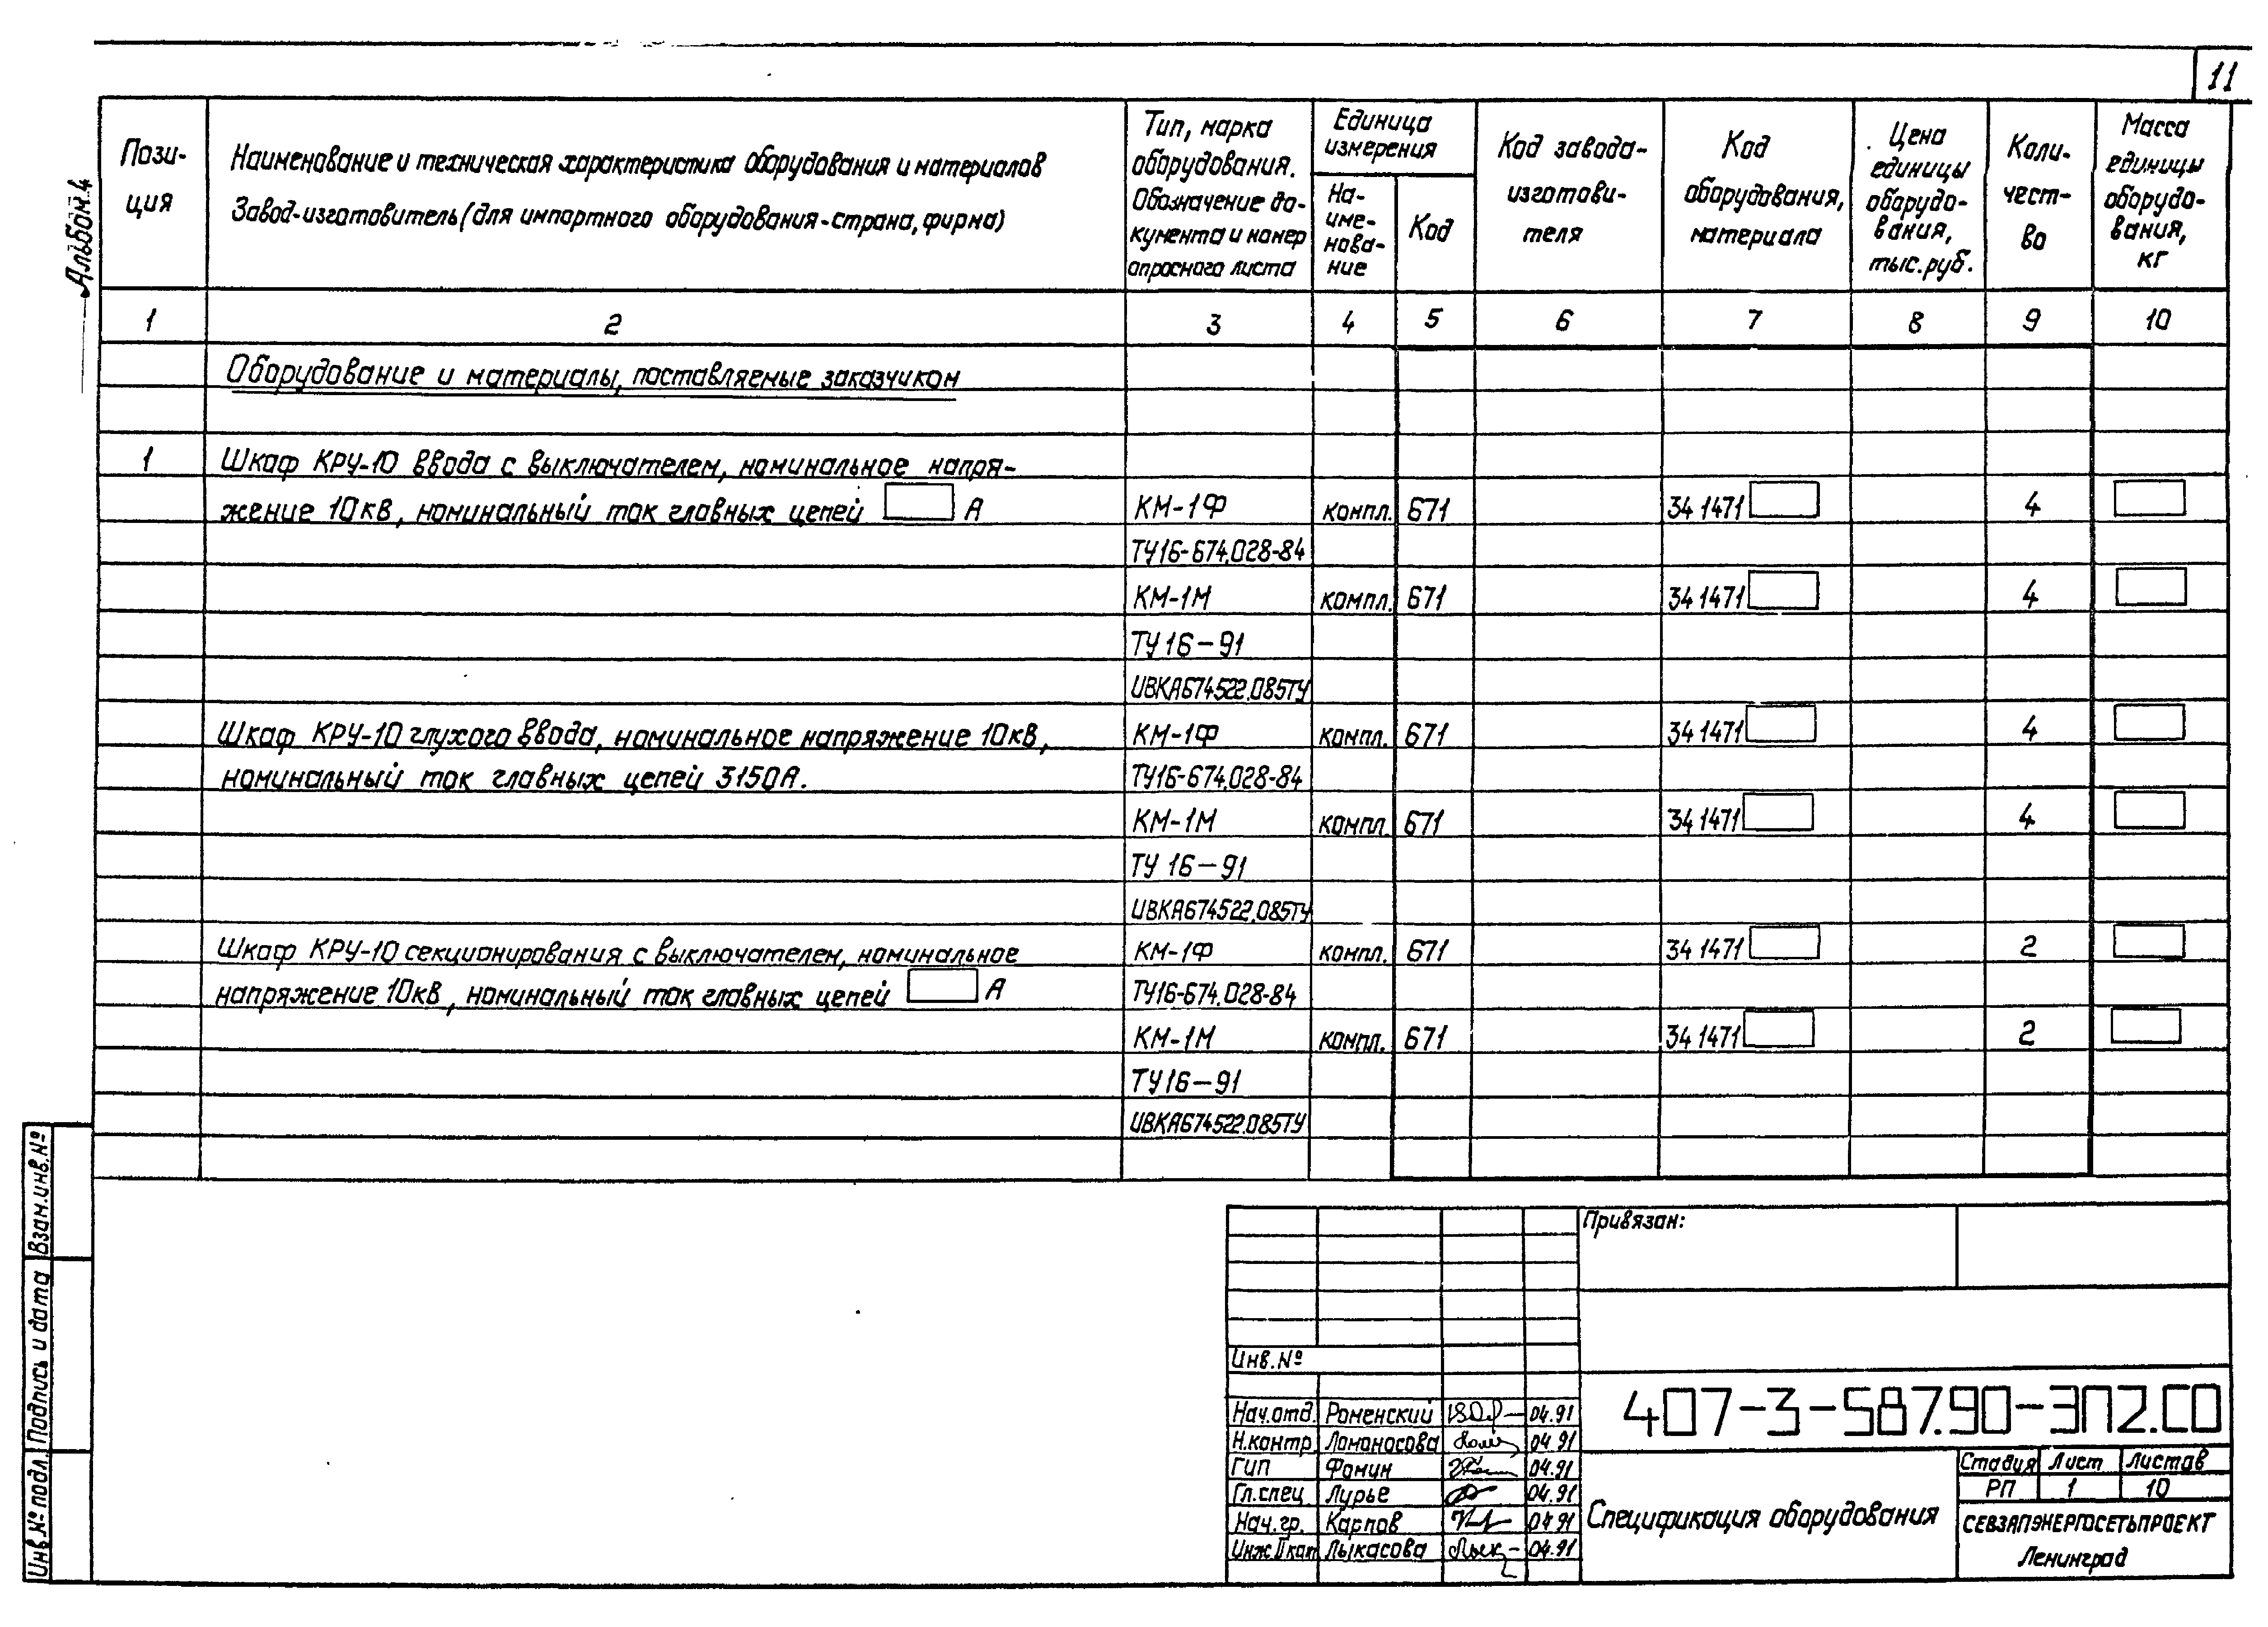 11
Альбом 4
Пози-
ция
Наименование и техническая характеристика оборудования и материалов
Завод-изготовитель (для импортного оборудования-страна, фирма)
Тип, марка
оборудования.
Обозначение до-
кумента и номер
опросного листа
Единица
измерения
На-
име-
нова-
ние
Код
Код завода-
изготови-
теля
Код
оборудования,
материала
Цена
единицы
оборудо-
вания,
тыс.руб.
Коли-
чест-
во
Масса
единицы
оборудо-
вания,
кг
1 2 3 4 5 6 7 8 9 10
Оборудование и материалы, поставляемые заказчиком
1 Шкаф КРУ-10 ввода с выключателем, номинальное напря-
жение 10кВ, номинальный ток главных цепей А КМ-1Ф компл. 671 34 1471 4
ТУ16-674.028-84
КМ-1М компл. 671 34 1471 4
ТУ 16-91
ИВКА674522.085ТУ
Шкаф КРУ-10 глухого ввода, номинальное напряжение 10кВ, КМ-1Ф компл. 671 34 1471 4
номинальный ток главных цепей 3150А. ТУ16-674.028-84
КМ-1М компл. 671 34 1471 4
ТУ 16-91
ИВКА674522.085ТУ
Шкаф КРУ-10 секционирования с выключателем, номинальное КМ-1Ф компл. 671 34 1471 2
напряжение 10кВ, номинальный ток главных цепей А ТУ16-674.028-84
КМ-1М компл. 671 34 1471 2
ТУ16-91
ИВКА674522.085ТУ
Взам.инв.№
Подпись и дата
Инв.№ подл.
Привязан:
Инв.№
Нач.отд. Роменский 04.91
Н.контр. Ломоносова 04.91
ГИП Фомин 04.91
Гл.спец. Лурье 04.91
Нач.гр. Карпов 04.91
Инж.II кат Лыкасова 04.91
407-3-587.90-ЭП2.СО
Спецификация оборудования
Стадия Лист Листов
РП 1 10
СЕВЗАПЭНЕРГОСЕТЬПРОЕКТ
Ленинград